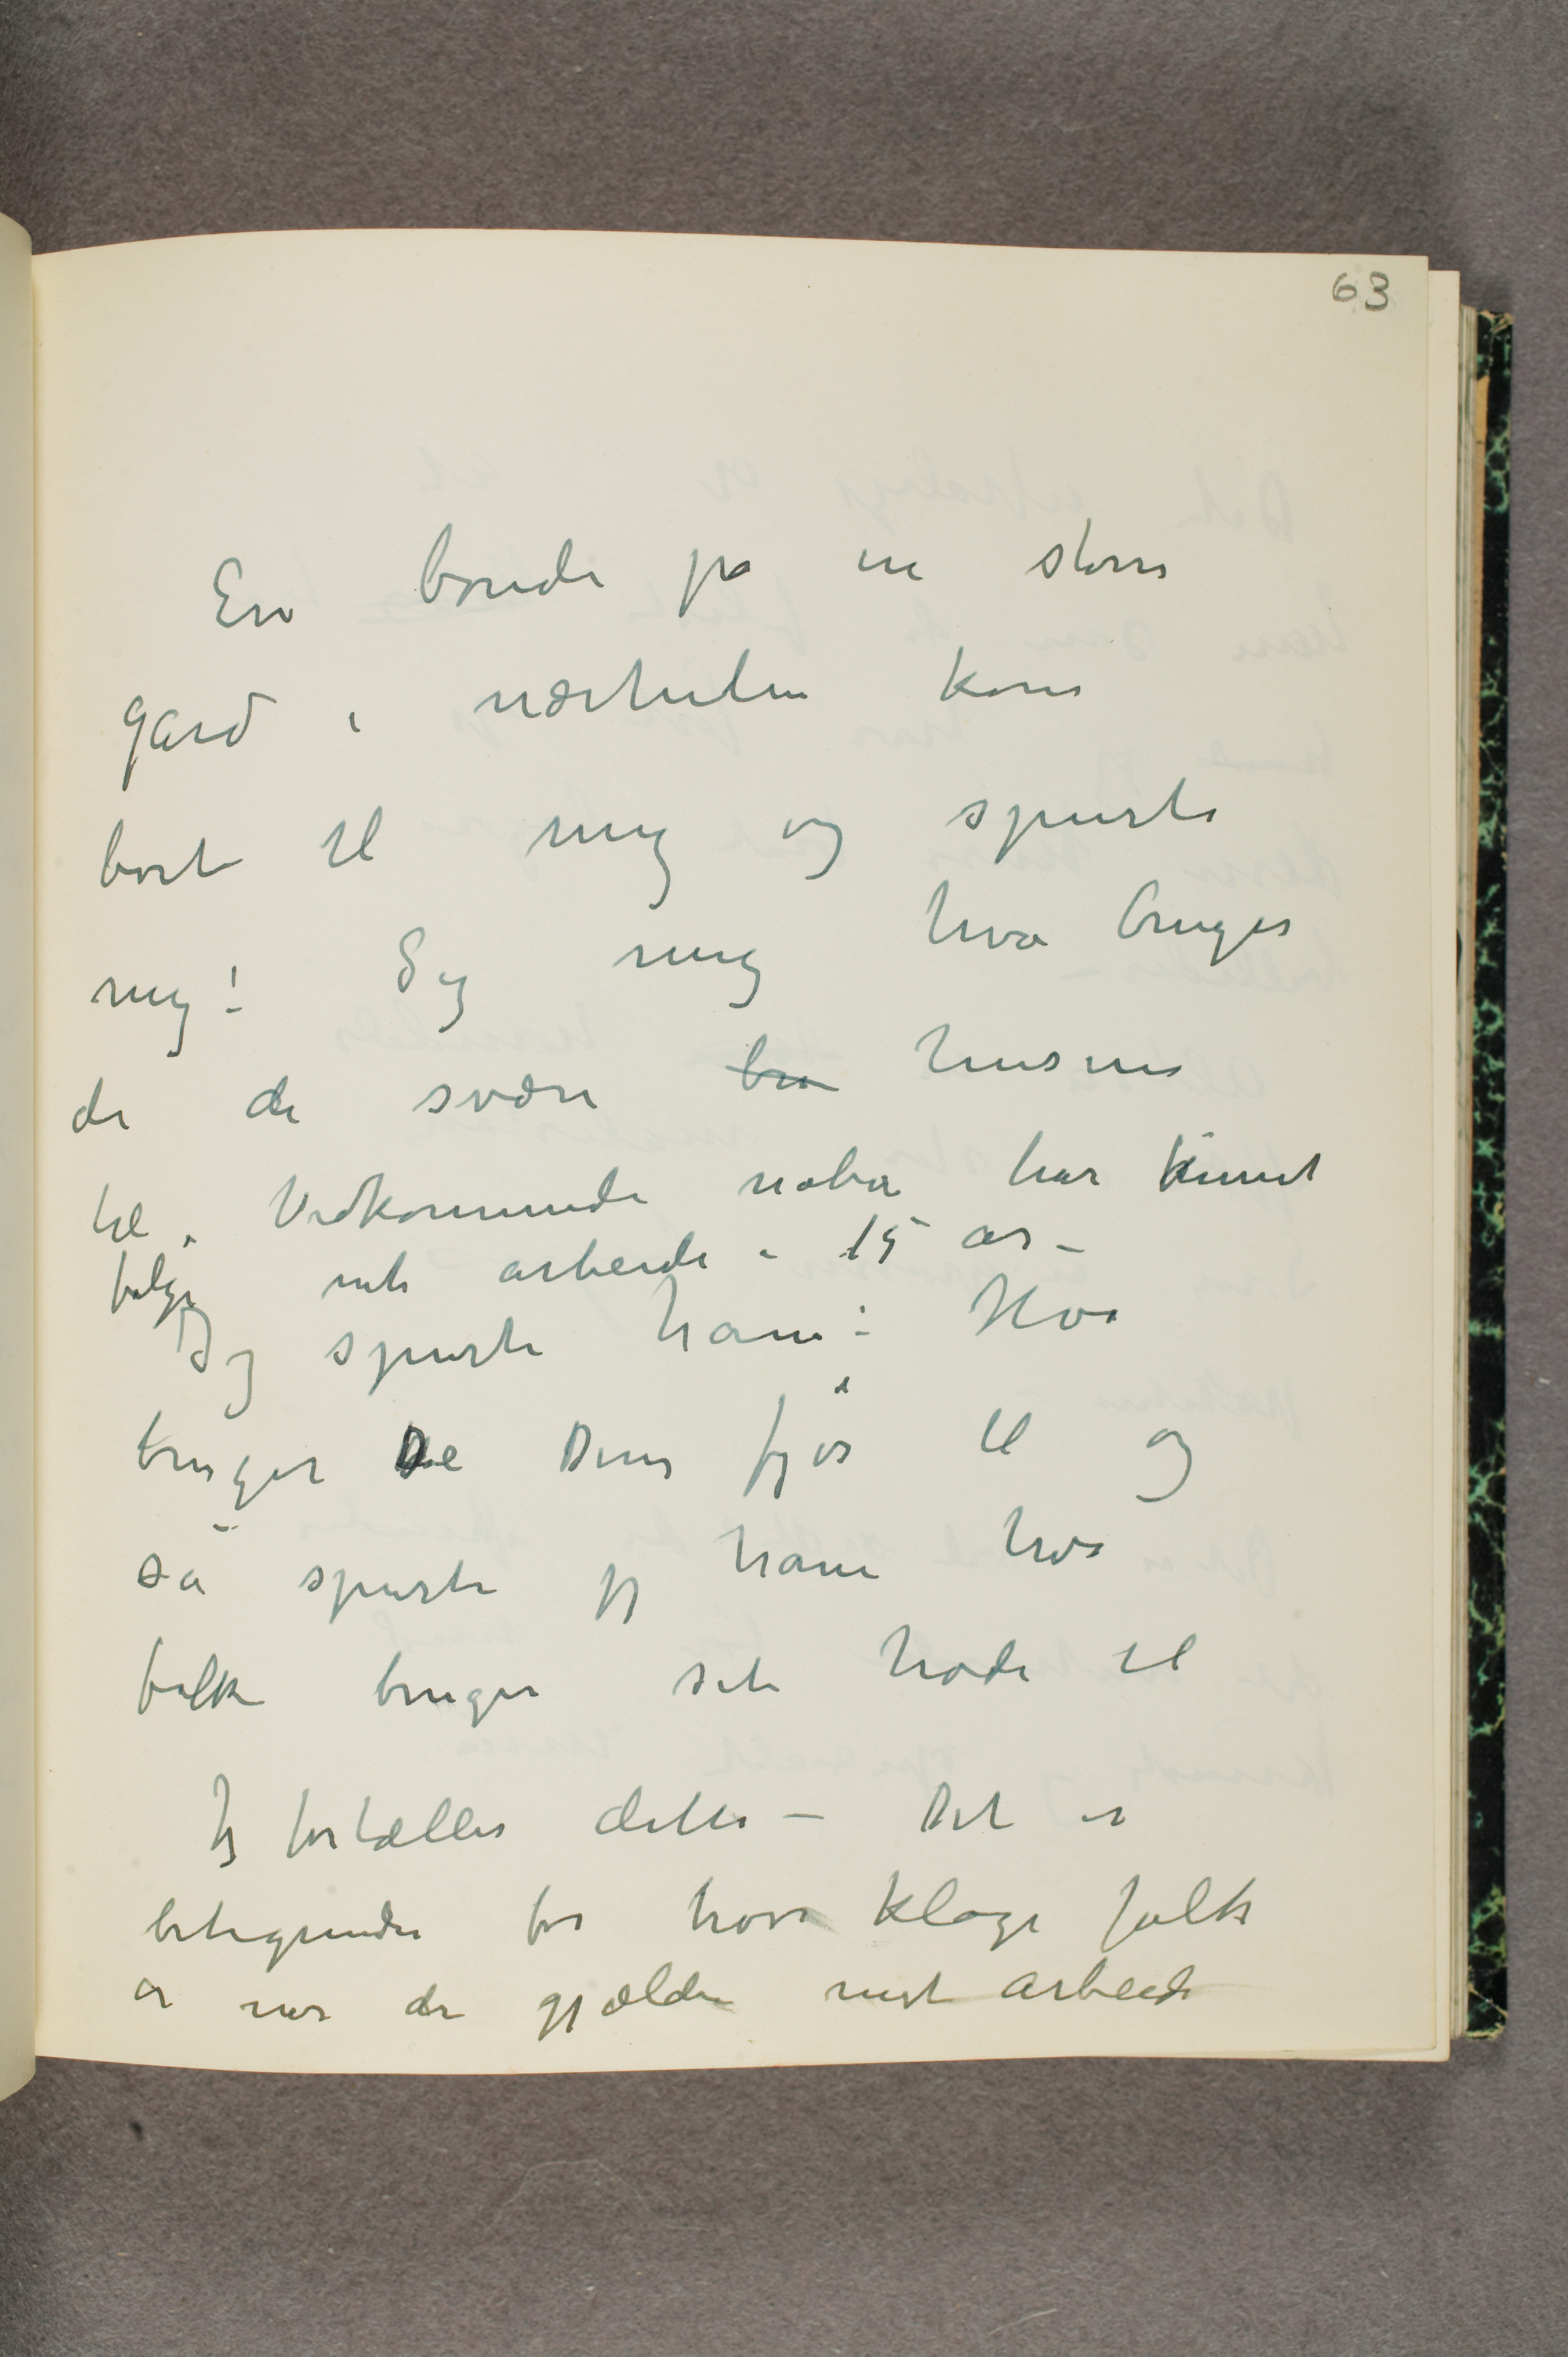 63
En bonde på en større
gård i nærheten kom
bort til mig og spurte
mig: Sig mig hva bruger
de de svære bra husene
til. Vedkommende nabo har kunnet
følge mit arbeide i 15 år –
Jeg spurte ham: Hva
bruger De Deres fjøs til og
så spurte jeg ham hva
folk bruger sit hode til
Jeg fortæller dette – Det er
betegnende for hvor kloge folk
er når det gjælder mit arbeide